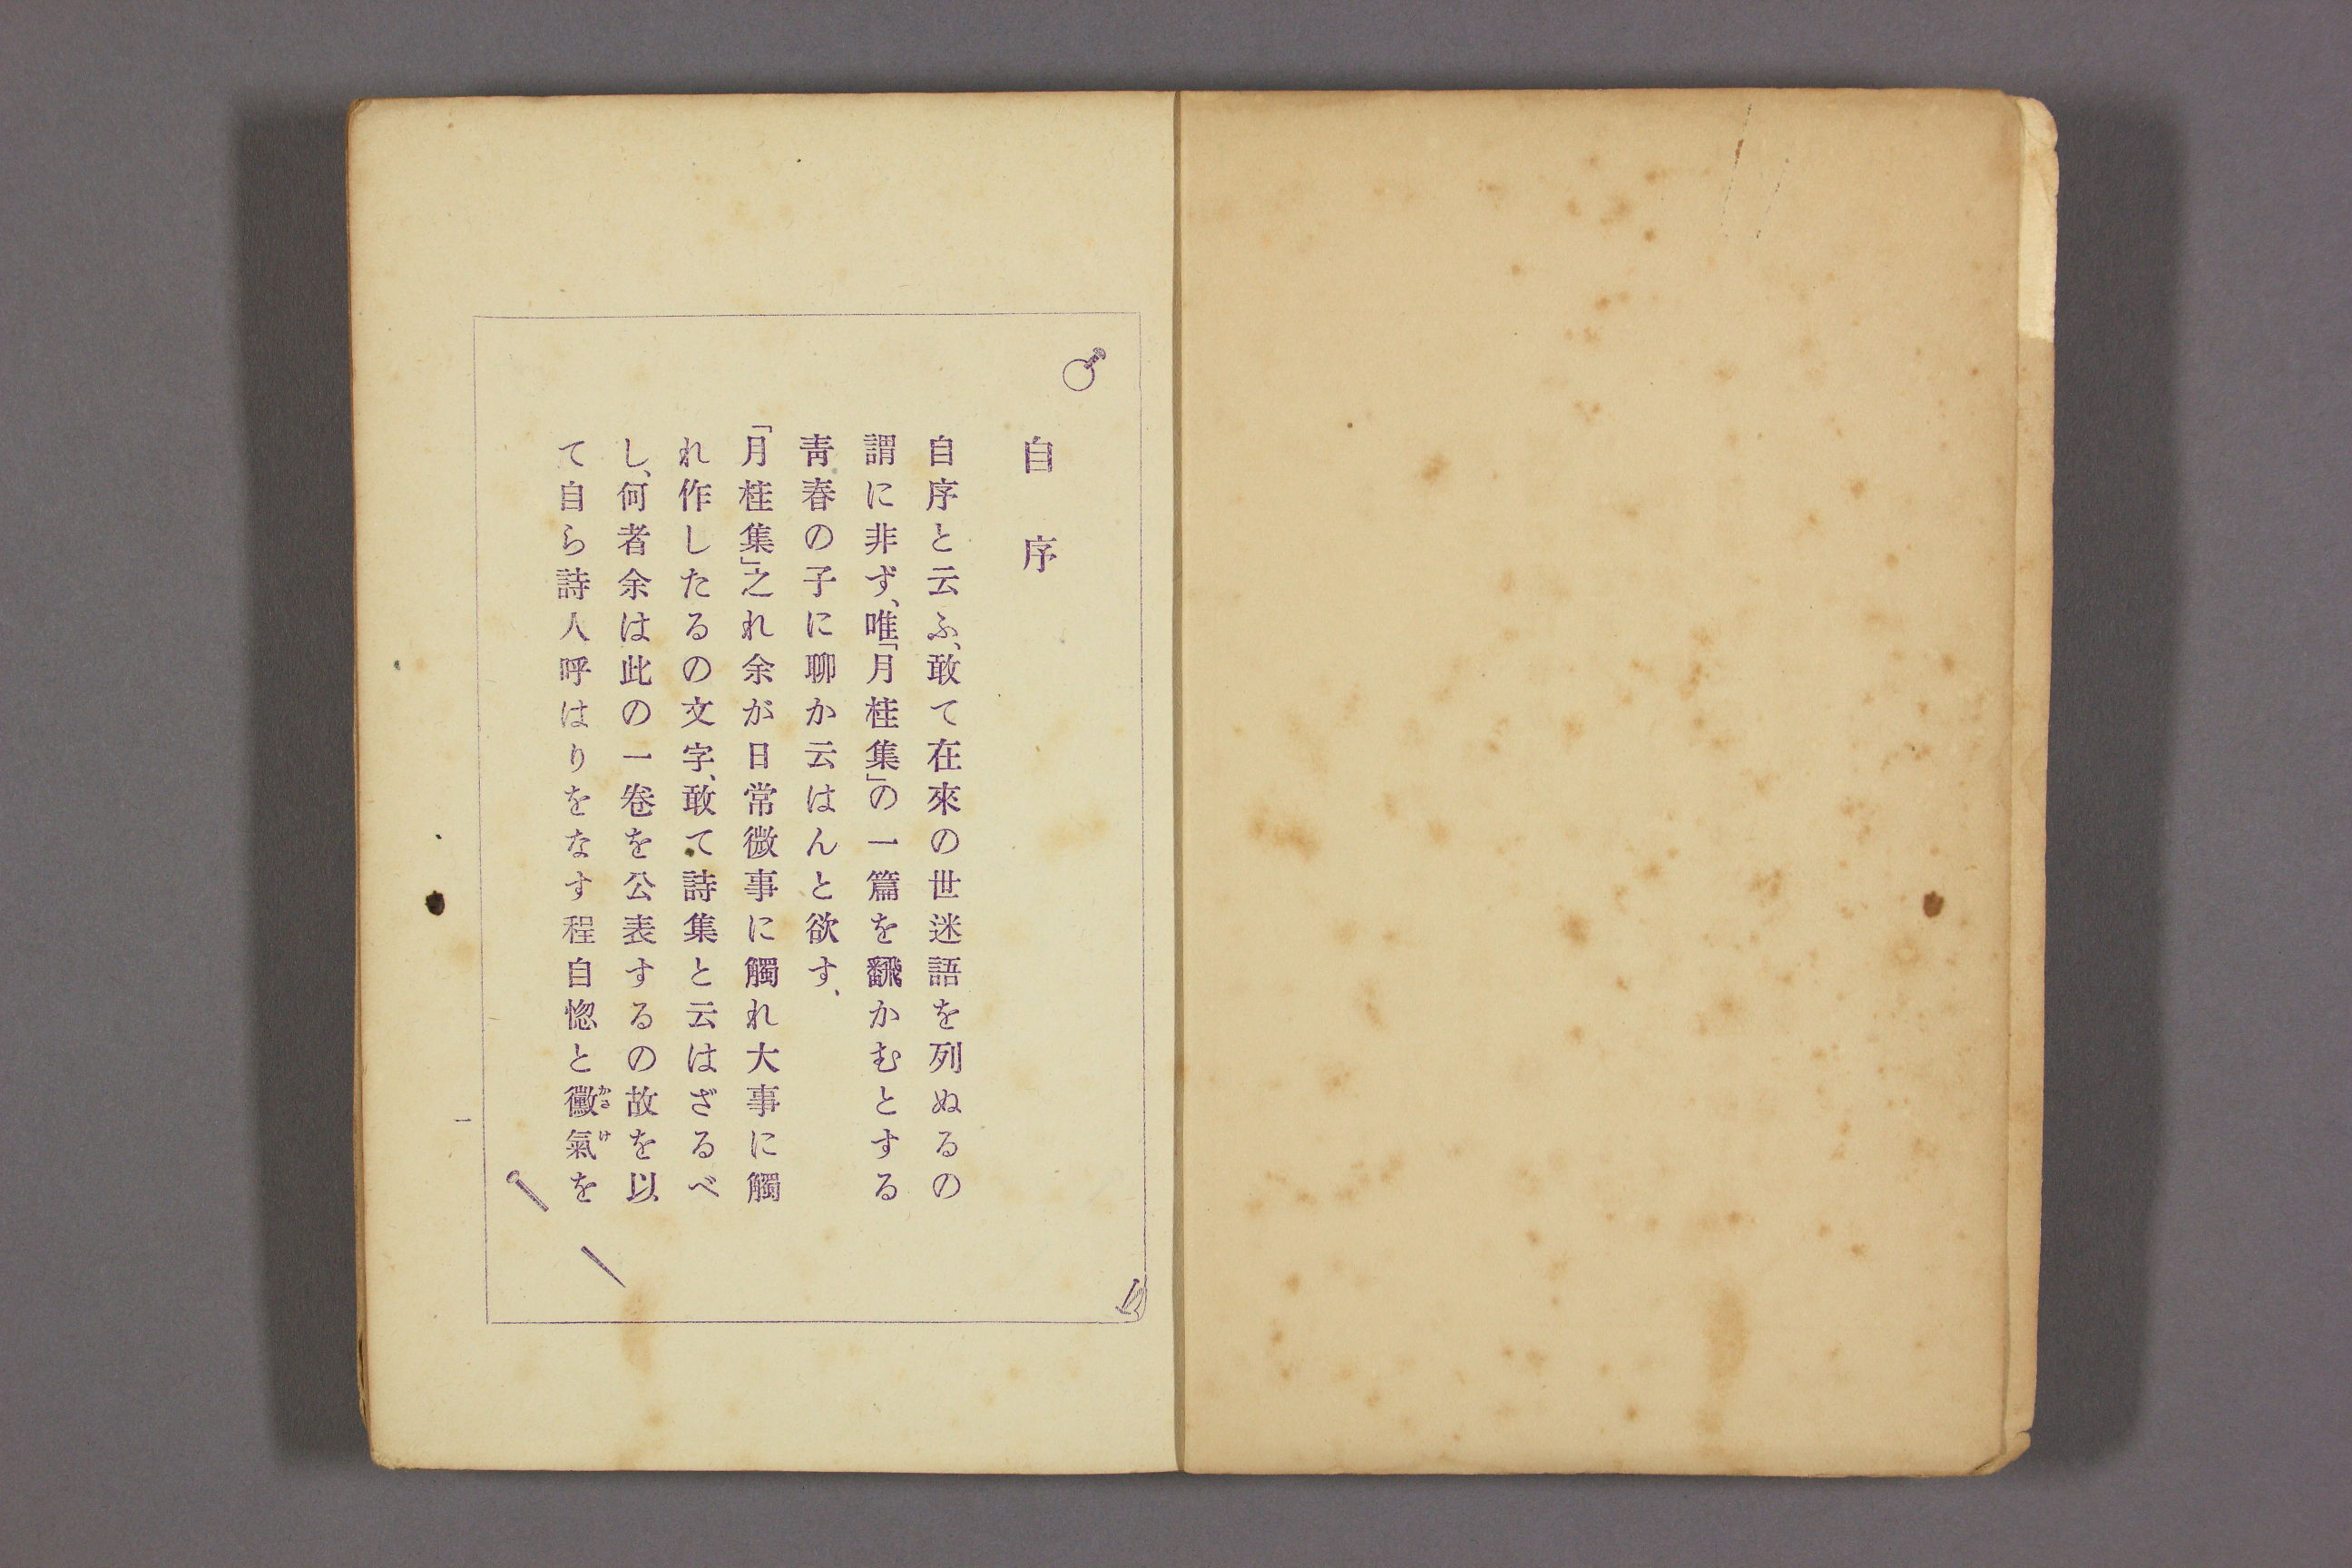 自序
自序と云ふ、敢て在來の世迷語を列ぬるの
謂に非ず、唯「月桂集」の一篇を飜かむとする
靑春の子に聊か云はんと欲す、
「月桂集」之れ余が日常微事に觸れ大事に觸
れ作したるの文字、敢て詩集と云はざるべ
し、何者余は此の一卷を公表するの故を以
て自ら詩人呼はりをなす程自惚と黴氣を
かさけ
一